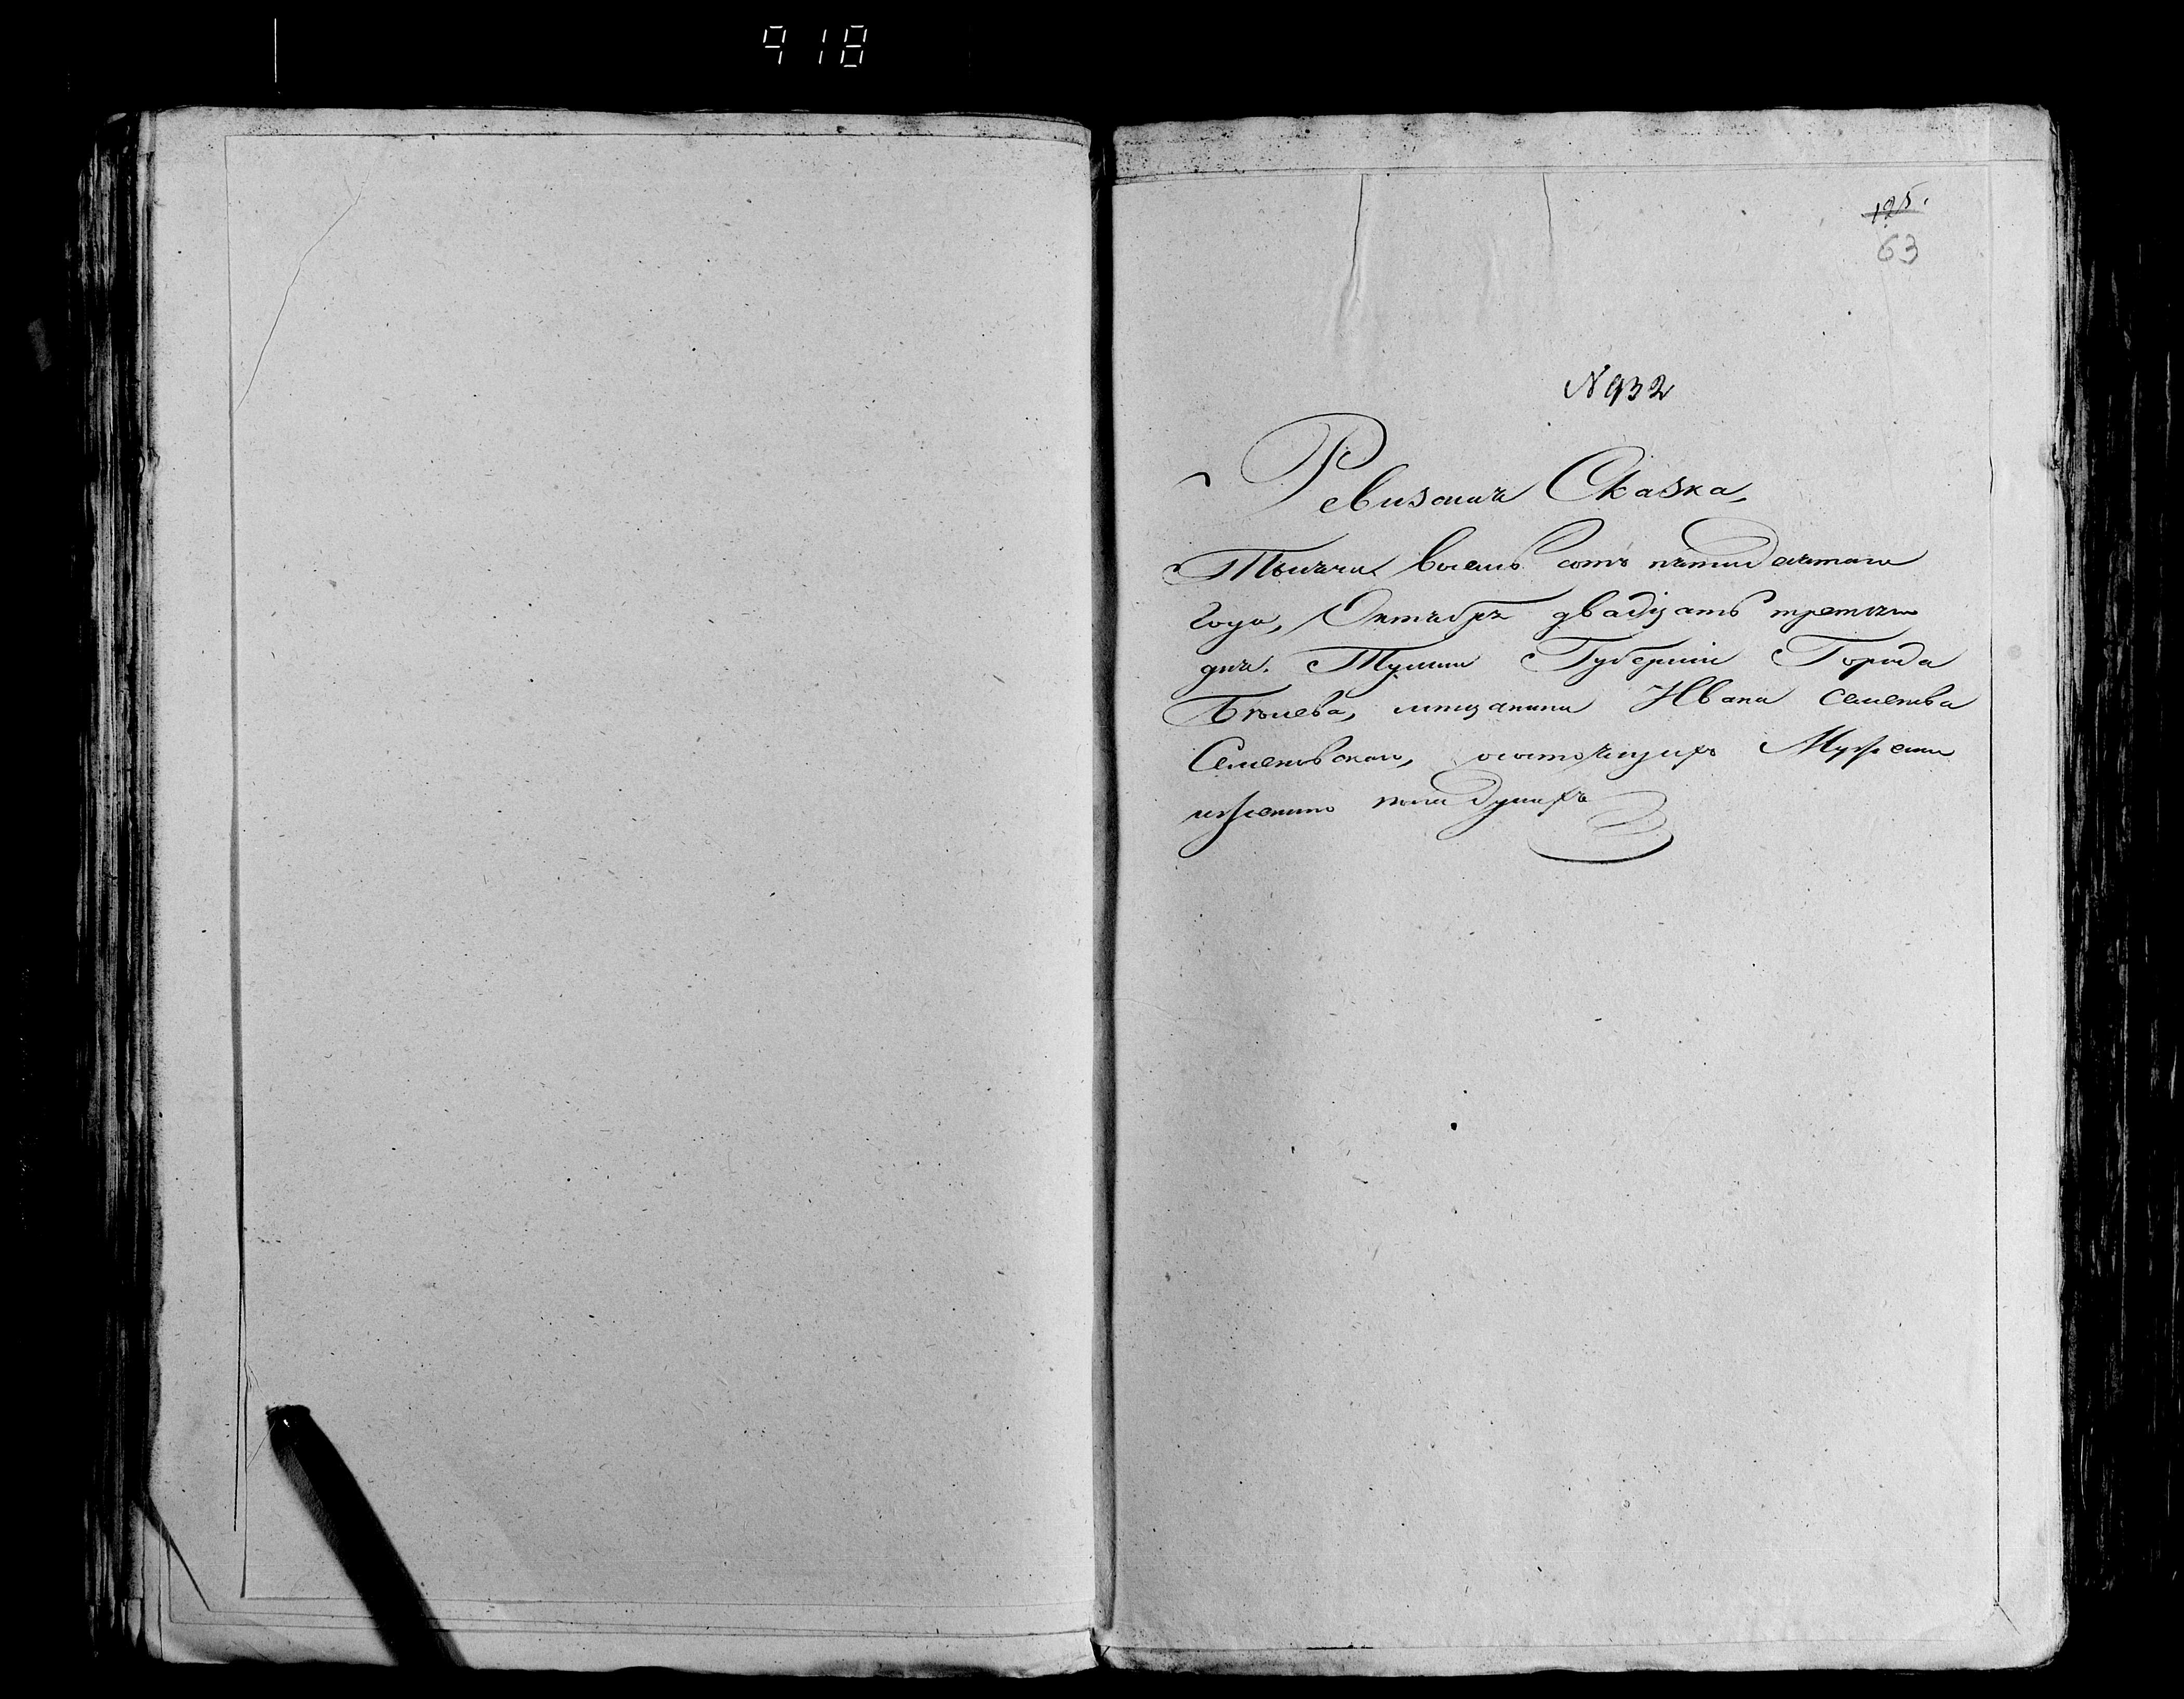 918
125.
63
N 932
Ревизская Сказка,
Тысяча восемь сотъ пятидесятаго
года, Октября двадцать третьяго
дня. Тульской Губернии Города
Белева, мещанина Ивана Семенова
Семеновскаго, о состоящихъ Мужеска
и женска пола душахъ